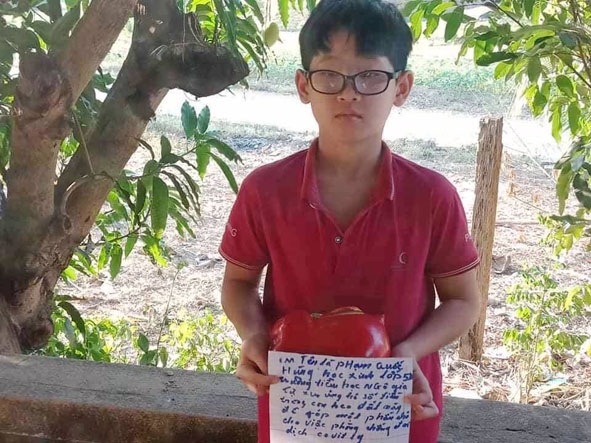 Em Tên là Phạm Quốc
Hưng học sinh lớp 5
trường tiểu học Ngô Gia
Tự xin ủng hộ số tiền
trong con heo đất này
để góp một phần nhỏ
cho việc phòng chống đại
dịch covid 19